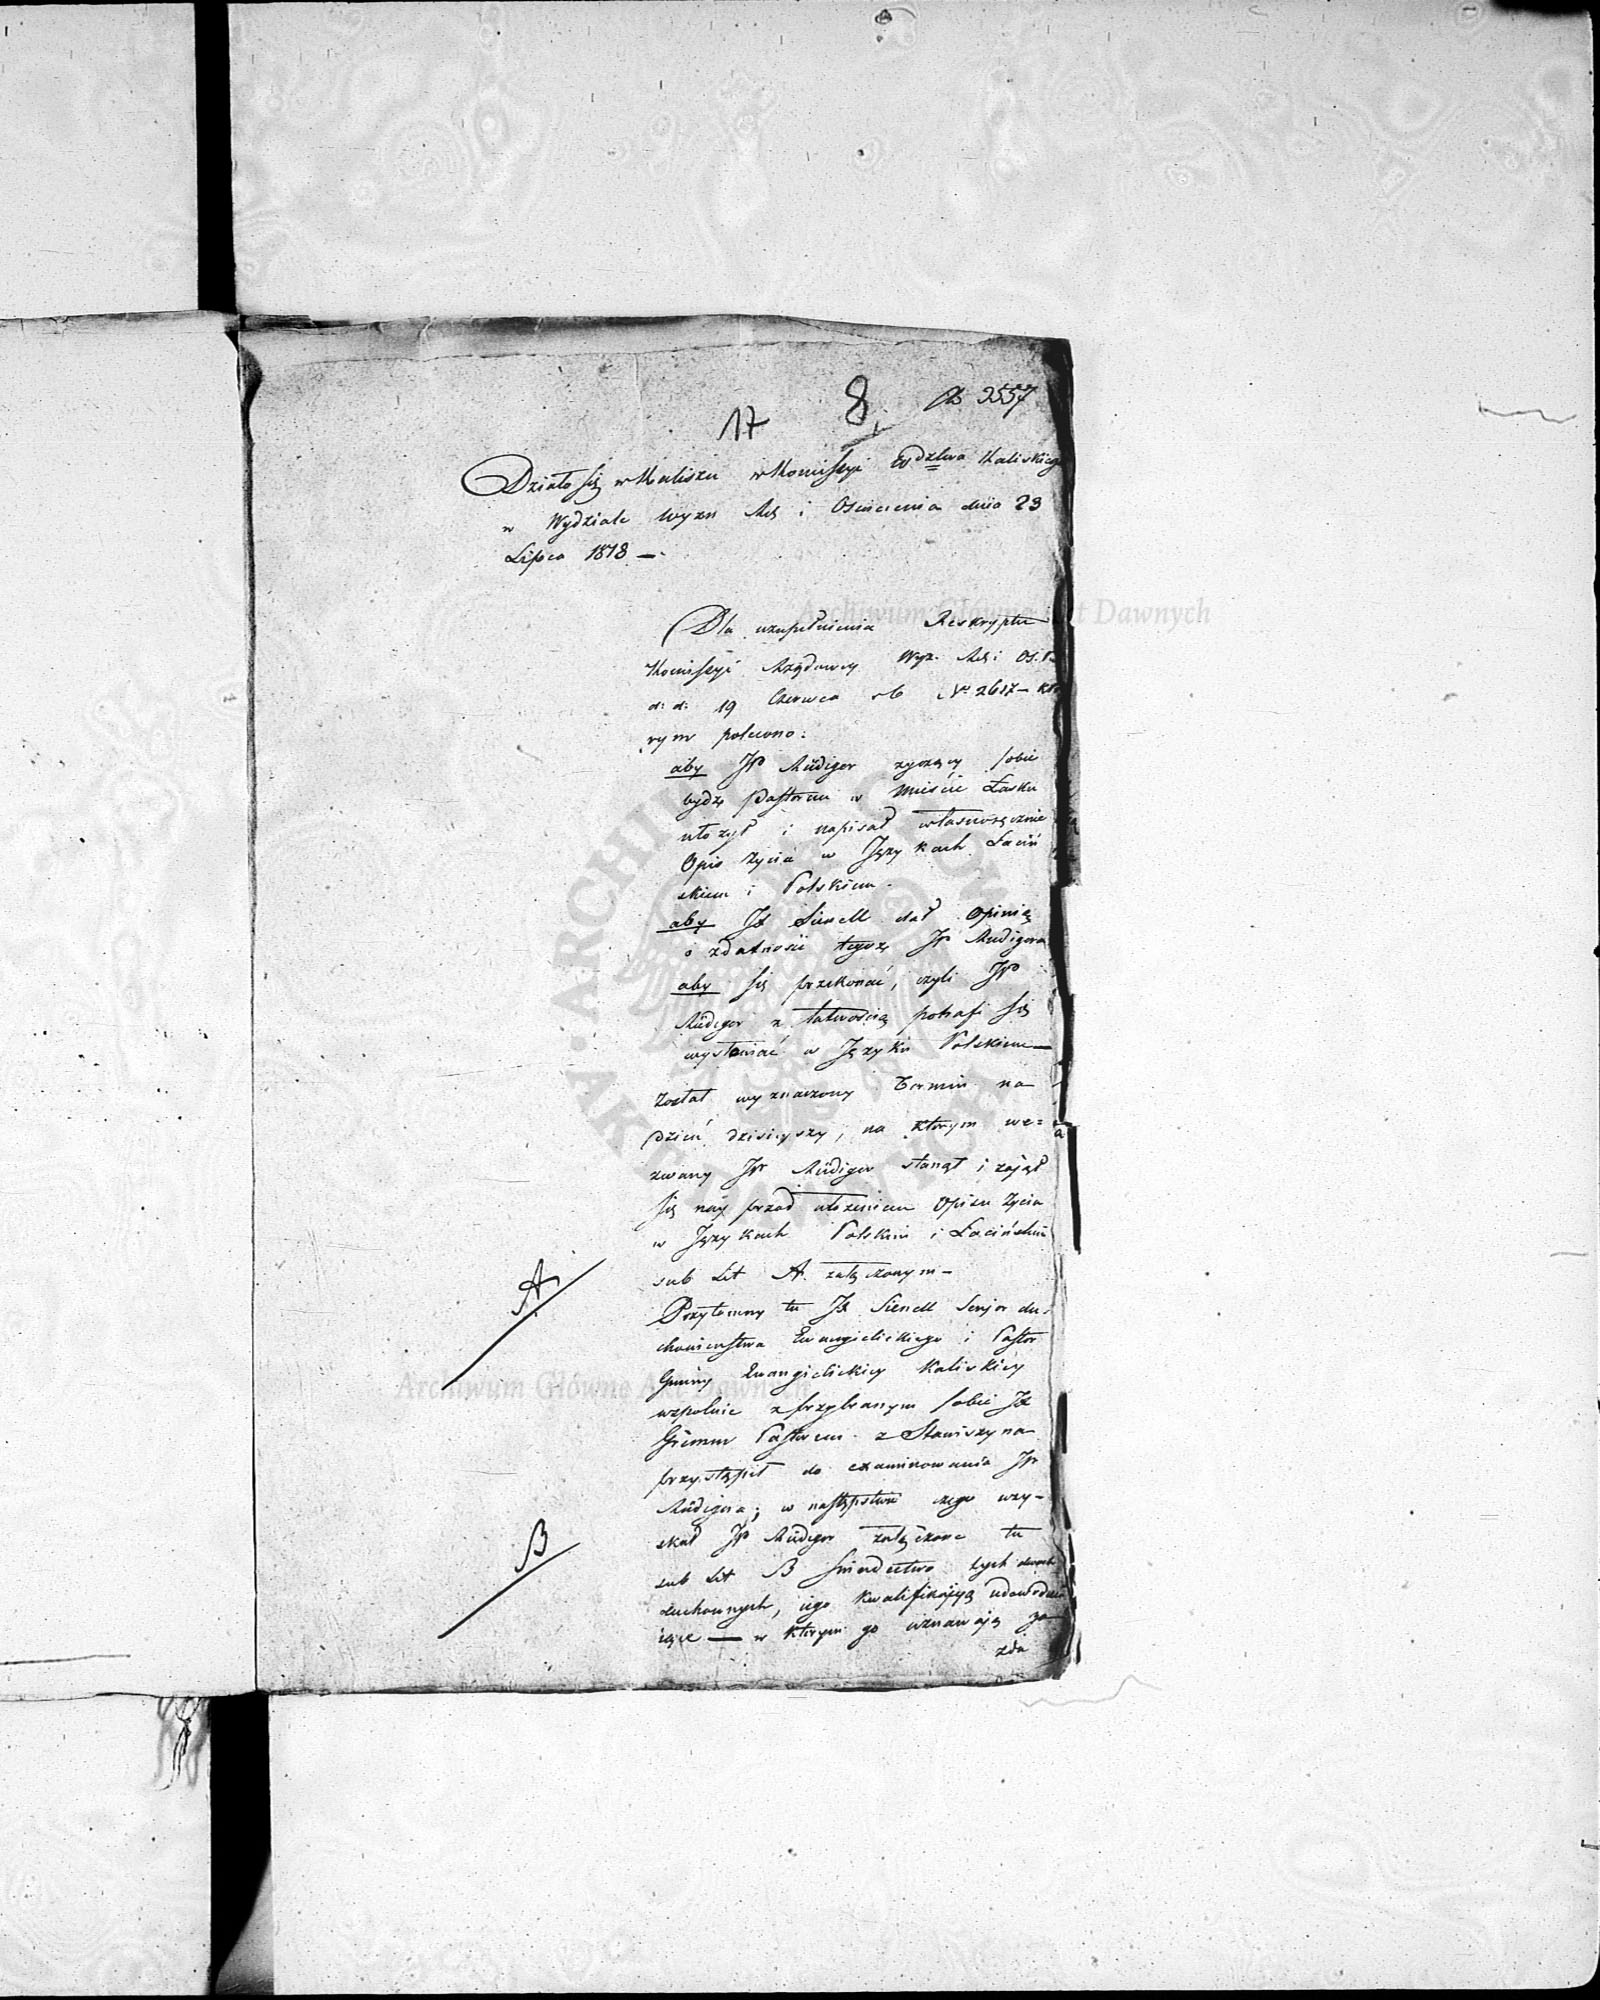 17 8. 2557
Działo się w Kaliszu w Komissyi Wdztwa Kaliskiego
w Wydziale Wyzn Rel i Oświecenia dnia 23
Lipca 1818 —.
Dla uzupełnienia Reskryptu
Komissyi Rządowey Wyz. Rel: i Oś. P.
d: d: 19 Czerwca rb No 2617 – któ
rym polecono:
aby JP Rüdiger życzący sobie
bydź Pastorem w Mieście Łasku
ułożył i napisał własnoręcznie
Opis Życia w Językach Łaciń
skiem i Polskiem.
aby JX Sienell dał Opinią
o zdatności tegoż JP Rudigera
aby się przekonać, czyli JP
Rüdiger z łatwością potrafi się
wysławiać w Języku Polskiem —
Został wyznaczony Termin na
dzień dzisieyszy, na którym we=
zwany JP Rüdiger stanął i zajął
się nay przód ułożeniem Opisu Życia
w Językach Polskim i Łacińskim
A
sub Lit A. załączonym –
Przytomny tu JX Sienell Senjor du=
chowieństwa Ewangielickiego i Pastor
Gminy Ewangielickiey Kaliskiey
wspolnie z przybranym sobie JX
Pastorem z Stawiszyna
przystąpił do examinowania JP
Rüdigera; w następstwie czego uzy–
skał JP Rüdiger załączone tu
B
sub Lit B Świadectwo tych dwoch
duchownych, iego kwalifikacyą udowodnia
iące — w którym go uznawaią za
zda
Archiwum Główne Akt Dawnych
Archiwum Główne Akt Dawnych